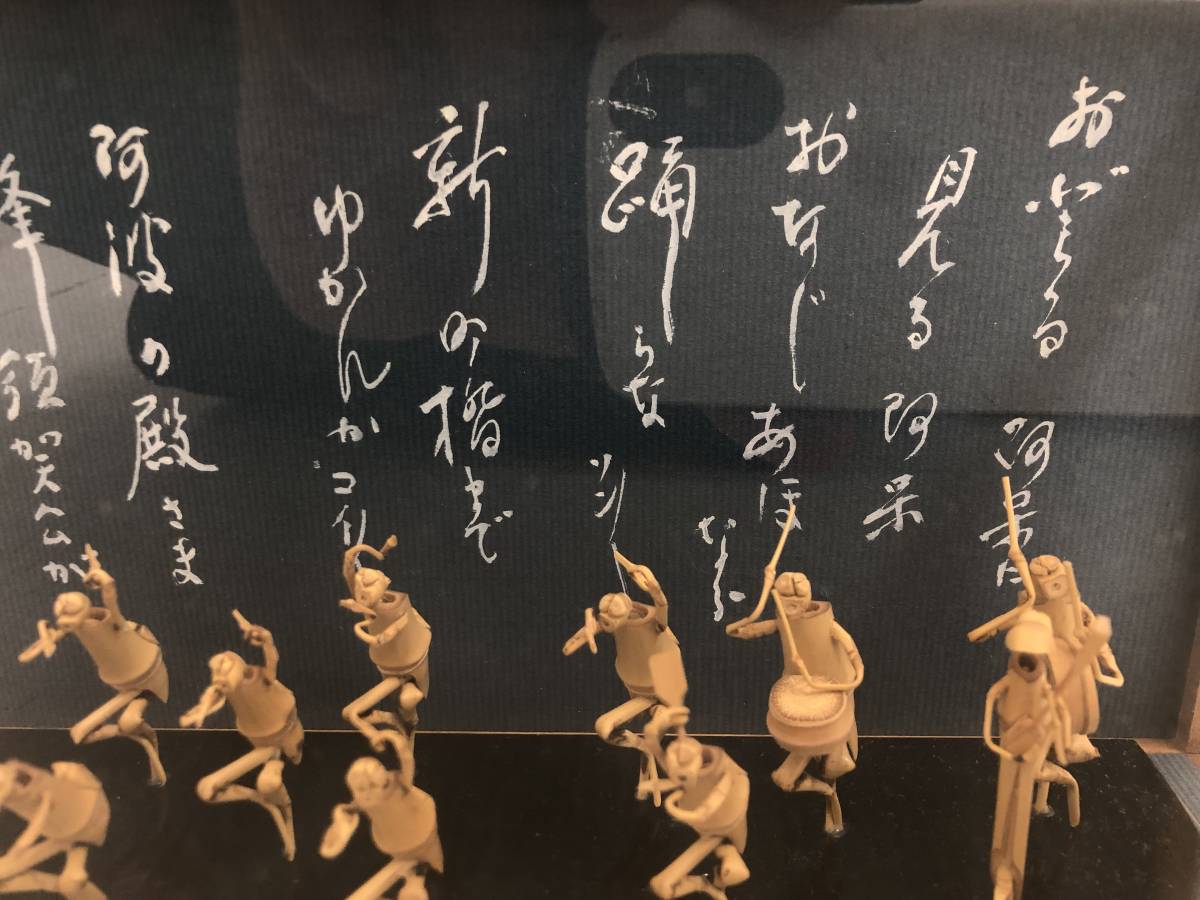 おどる阿呆に
見る阿呆
おなじあほ
なら
踊らなソン
新町橋まで
ゆかんかコイ
阿波の殿さま
須賀公が